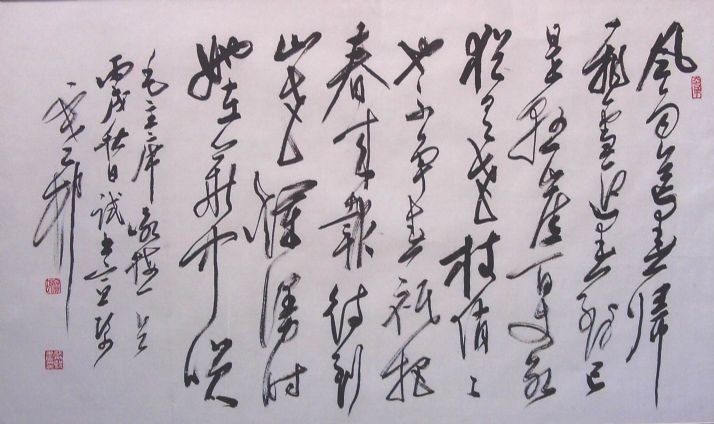 风雨送春归
飛雪迎春到已
是懸崖百丈冰
犹有花枝俏〻
也不争春祇把
春来報待到
山花爛漫时
她在丛中笑
毛主席咏梅一首
丙戌秋日试书